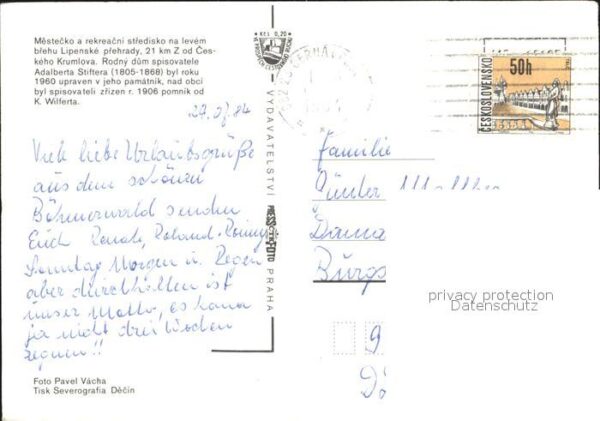 Městečko a rekreační středisko na levém
břehu Lipenské přehrady, 21 km Z od Čes-
kého Krumlova. Rodný dům spisovatele
Adalberta Stiftera (1805-1868) byl roku
1960 upraven v jeho památník, nad obcí
byl spisovateli zřízen r. 1906 pomník od
K. Wilferta.
Kčs 0,20
ČESKOSLOVENSKO
50h
Viele liebe Urlaubsgrüße
aus dem schönen
Böhmerwald senden
Erich Renate, Roland
Sonntag Morgen u. Regen
aber durchhalten ist
unser Motto, es kann
ja nicht drei Wochen
regnen!!
VYDAVATELSTVÍ
PRESSFOTO
PRAHA
Familie
Günter
Burgs
9
privacy protection
Datenschutz
Foto Pavel Vácha
Tisk Severografia Děčín